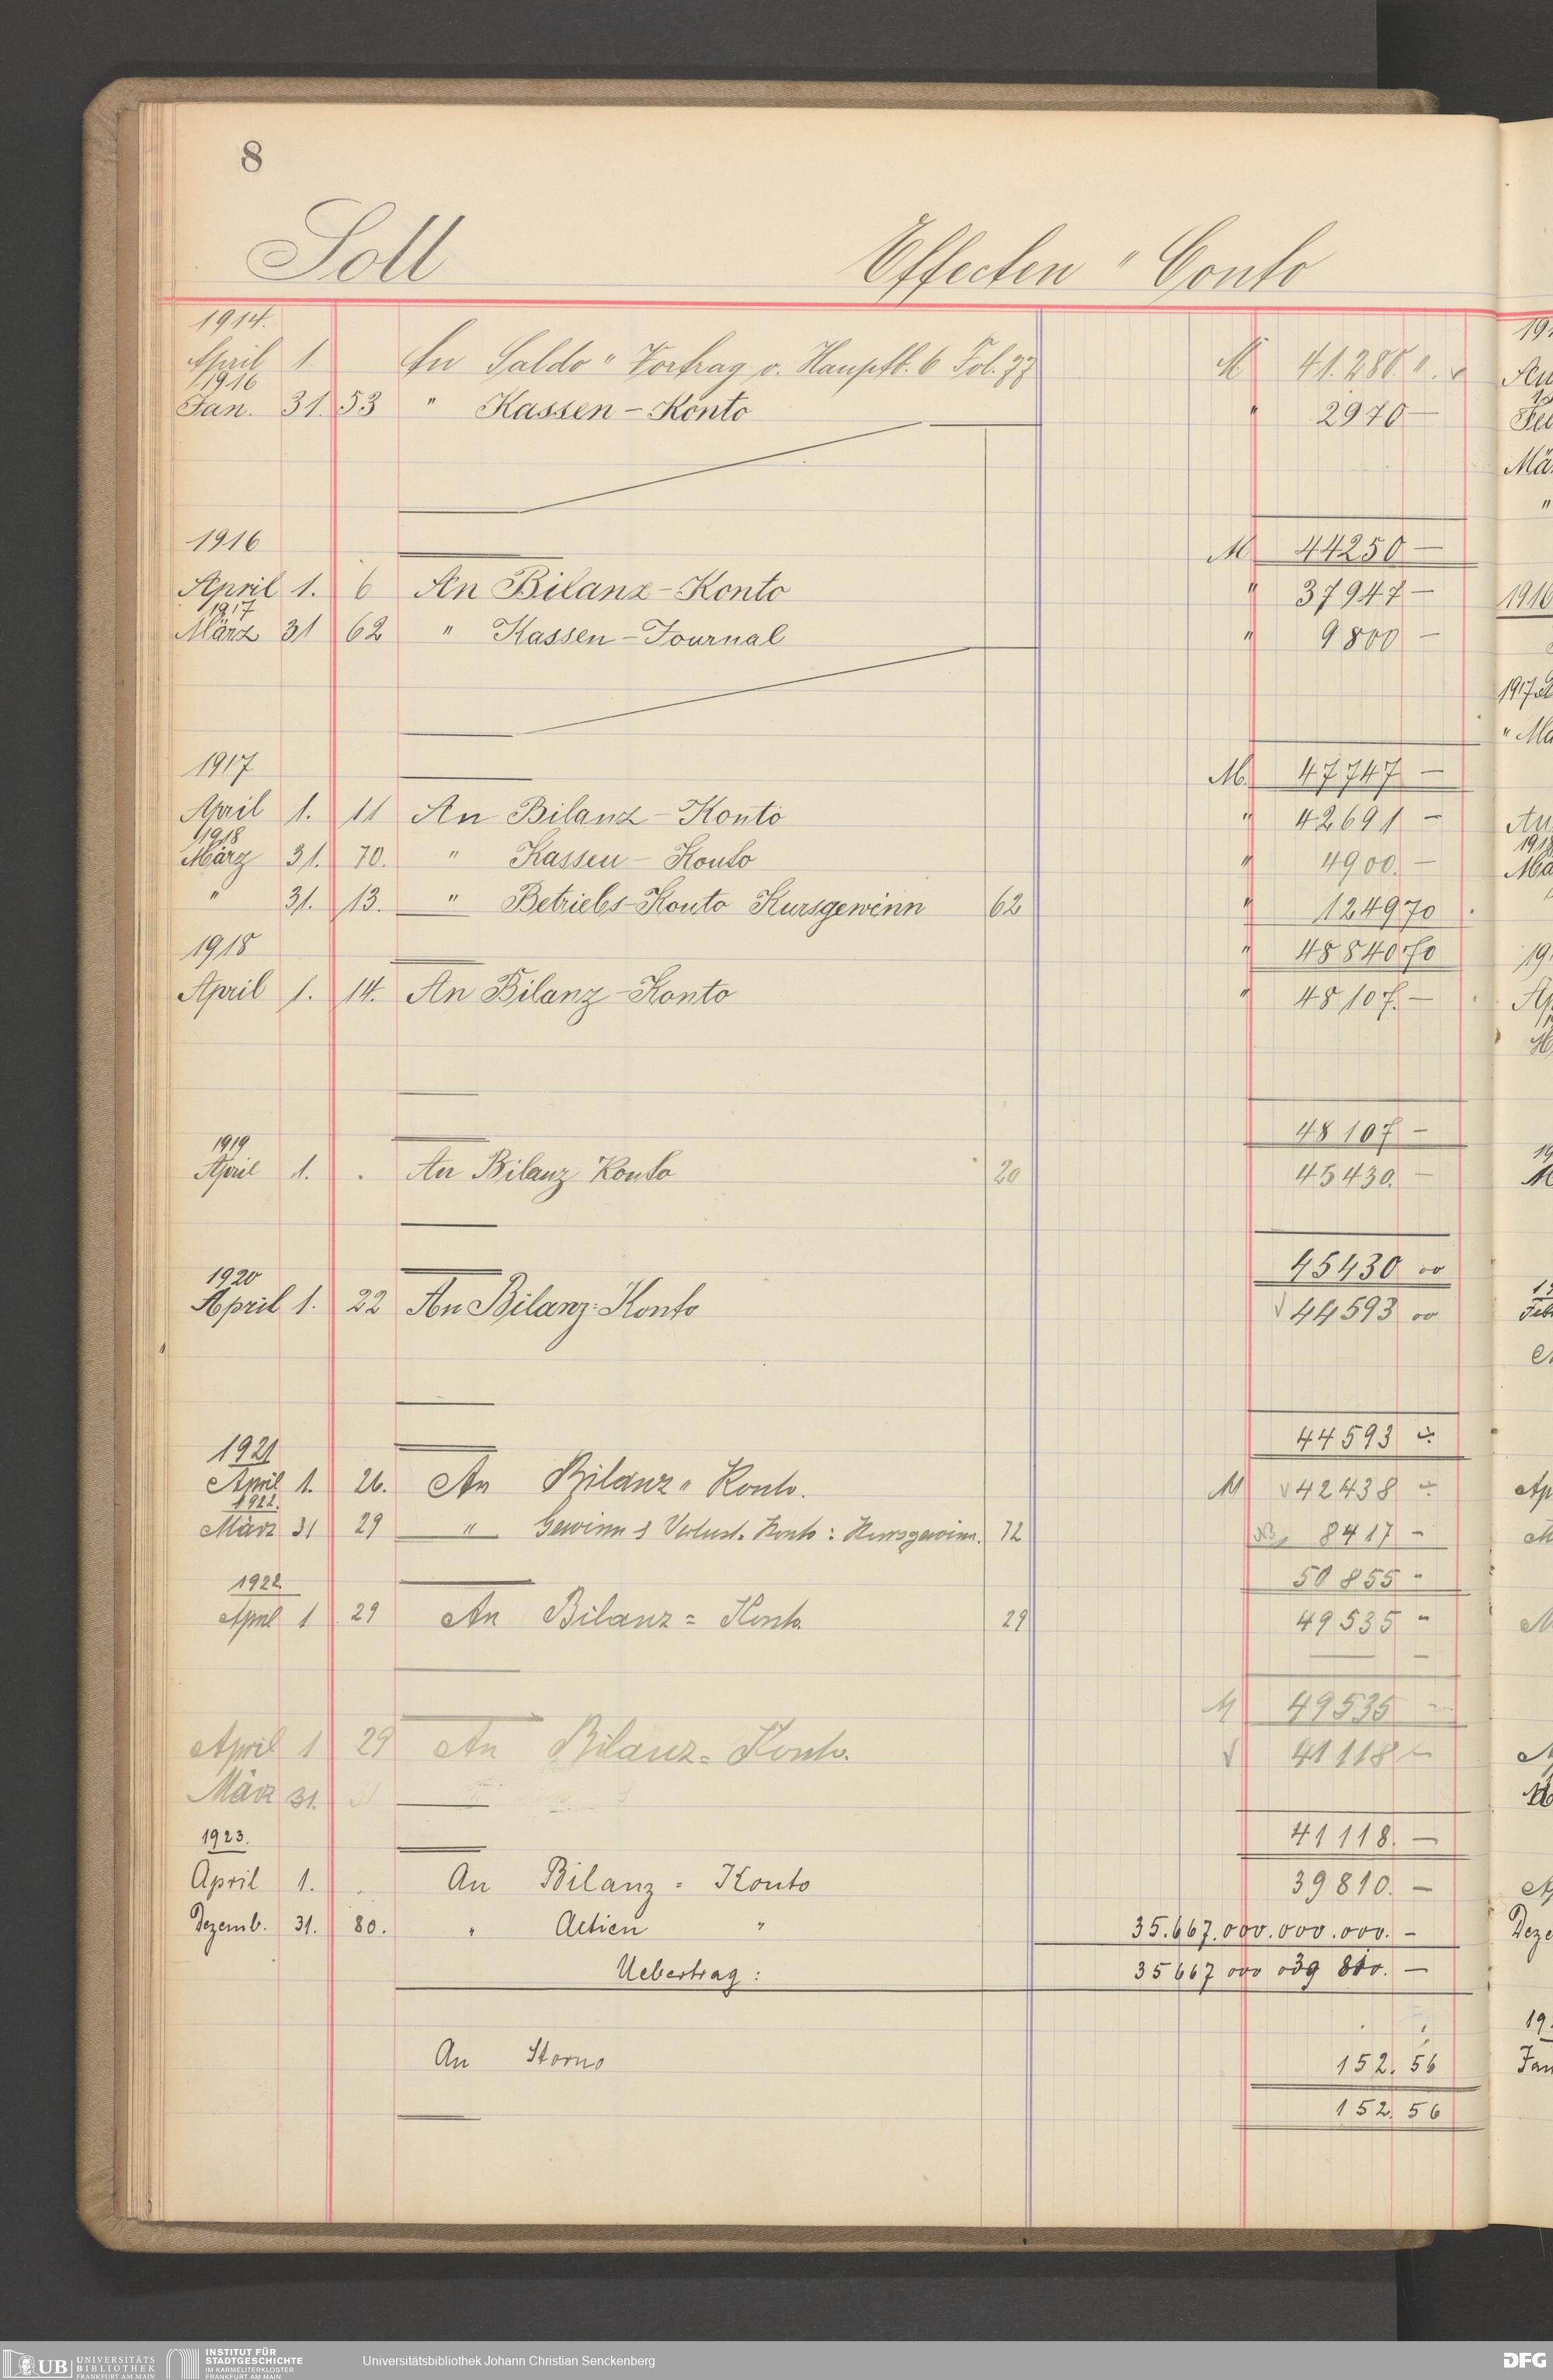 8
Soll Effecten " Conto
1914.
April 1. An Saldo " Vortrag v. Hauptb. 6 Fol. 77 M 41.280 ".
1916
Jan. 31. 53 " Kassen - Konto " 2970 —
1916 M 44250 —
April 1. 6 An Bilanz - Konto " 37947 —
1917
März 31 62 " Kassen - Journal " 9800 —
1917 M. 47747 —
April 1. 11 An Bilanz - Konto " 42691 —
1918
März 31. 70. " Kassen - Konto " 4900. —
" 31. 13. " Betriebs-Konto Kursgewinn 62 " 1249 70
1918 " 48840 70
April 1. 14. An Bilanz - Konto " 48107. —
48107 —
1919
April 1. . An Bilanz Konto 20 45430. —
45430 00
1920
April 1. 22 An Bilanz-Konto 44593 00
44593 ÷
1921
April 1. 26. An Bilanz " Konto. M 42438 ÷
1922.
März 31 29 " Gewinn & Verlust- Konto: Kursgewinn. 72 8417 -
50855 -
1922
April 1 29 An Bilanz = Konto 29 49535 "
M 49535 -
April 1 29 An Bilanz = Konto. 41118 -
März 31. 31
41118. —
1923.
April 1. . An Bilanz = Konto 39810. —
Dezemb. 31. 80. " Actien " 35.667.000.000.000. -
Uebertrag : 35 667 000 039 810. —
An Storno 152. 56
152. 56
UB UNIVERSITÄTS BIBLIOTHEK FRANKFURT AM MAIN
INSTITUT FÜR STADTGESCHICHTE IM KARMELITERKLOSTER FRANKFURT AM MAIN
Universitätsbibliothek Johann Christian Senckenberg
DFG